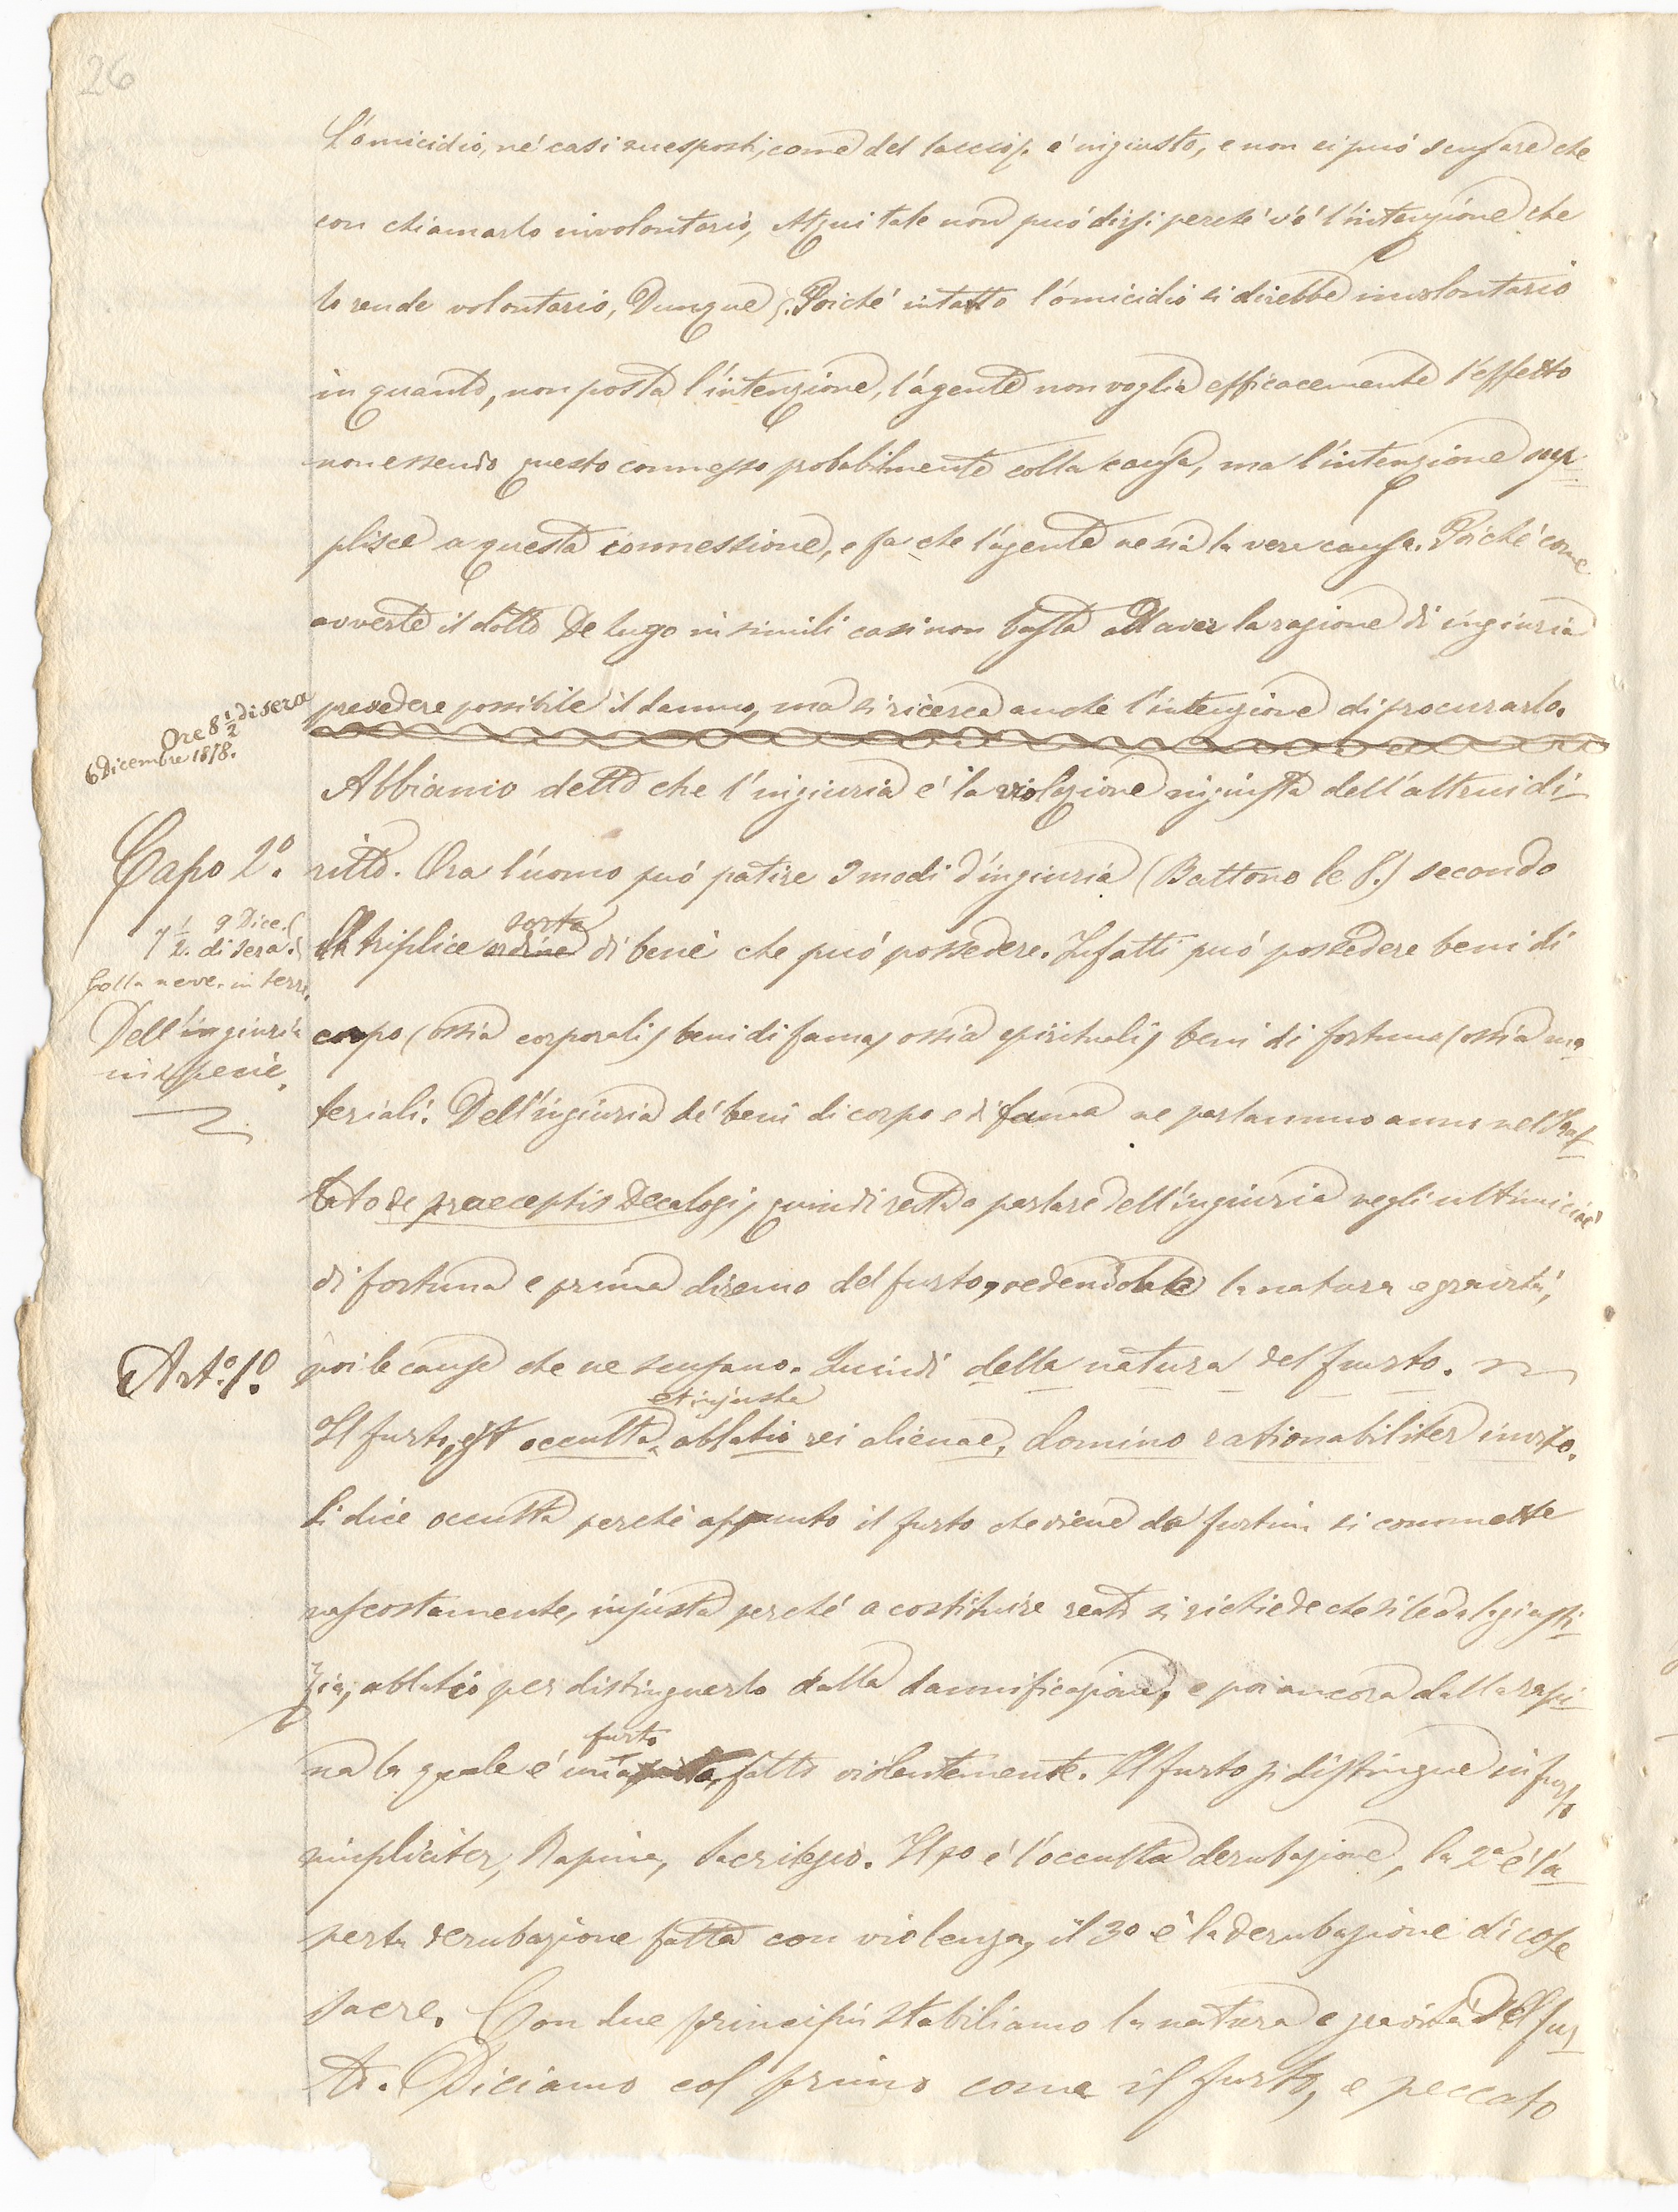 26
L'omicidio, né casi suesposti, come del laccio p. é ingiusto, e non si può scusare che
con chiamarlo involontario, Atqui tale non può dirsi perché v'é l'intenzione che
lo rende volontario, Dunque. Poiché intatto l'omicidio si direbbe involontario
in quanto, non posta l'intenzione, l'agente non voglia efficacemente l'effetto
non essendo questo connesso probabilmente colla causa, ma l'intenzione sup-
plisce a questa connessione, e fa che l'agente ne sia la vera causa. Poiché come
avverte il dotto De Lugo in simili casi non basta all aver la ragione di ingiuria
prevedere possibile il danno, ma si ricerca anche l'intenzione di procurarlo.
Ore 8 1/2 di sera
6 Dicembre 1878.
Abbiamo detto che l'ingiuria é la violazione ingiusta dell'altrui di-
Capo 2º.
ritto. Ora l'uomo può patire 3 modi d'ingiuria (Battono le 8.) secondo
9 Dice.
7 1/2. di sera.
Colla neve in terra.
il triplice ordine sorta di beni che può possedere. Infatti può possedere beni di
Dell'ingiuria
in ispecie.
corpo (ossia corporali) beni di fama, ossia spirituali, beni di fortuna (ossia ma-
teriali. Dell'ingiuria de' beni di corpo e di fama ne parlammo anno nel Trat-
tato de praeceptis Decalogi, quindi resta a parlare dell'ingiuria negli ultimi cioé
di fortuna e prima diremo del furto, vedendone la natura e gravità,
Art.º 1º.
poi le cause che ne scusano. Quindi della natura del furto.
et injusta
Il furto, est occulta ablatio rei alienae, domino rationabiliter invito.
Si dice occulta perché appunto il furto che viene da furtim si commette
nascostamente, injusta perché a costituire reato si richiede che si leda la giusti-
zia, ablatio per distinguerlo dalla dannificazione, e poi ancora dalla rapi-
furto
na la quale é un fatto violentemente. Il furto si distingue in furto
simpliciter, Rapina, Sacrilegio. Il 1º é l'occulta derubazione, la 2ª é l'a-
perta derubazione fatta con violenza, il 3º é la derubazione di cose
sacre. Con due principii stabiliamo la natura e gravità del fur-
to. Diciamo col primo come il furto, e peccato